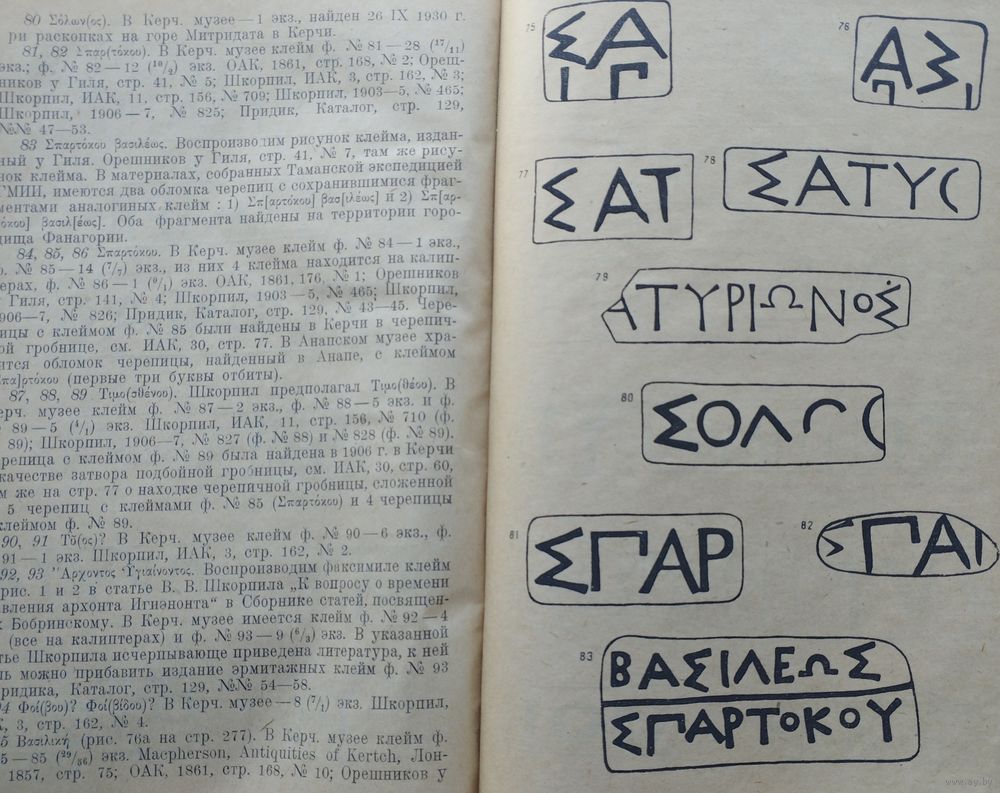 80 Σόλων(ος). В Керч. музее — 1 экз., найден 26 IX 1930 г.
ри раскопках на горе Митридата в Керчи.
81, 82 Σπαρ(τόκου). В Керч. музее клейм ф. № 81 — 28 (17/11)
экз.; ф. № 82 — 12 (10/2) экз. ОАК, 1861, стр. 168, № 2; Ореш-
ников у Гиля, стр. 41, № 5; Шкорпил, ИАК, 3, стр. 162, № 3;
Шкорпил, ИАК, 11, стр. 156, № 709; Шкорпил, 1903—5, № 465;
Шкорпил, 1906 — 7, № 825; Придик, Каталог, стр. 129,
№№ 47—53.
83 Σπαρτόκου βασιλέως. Воспроизводим рисунок клейма, издан-
ный у Гиля. Орешников у Гиля, стр. 41, № 7, там же рису-
нок клейма. В материалах, собранных Таманской экспедицией
ГМИИ, имеются два обломка черепиц с сохранившимися фраг-
ментами аналогиных клейм : 1) Σπ[αρτόκου] βασ[ιλέως] и 2) Σπ[αρ-
τόκου] βασιλ[έως]. Оба фрагмента найдены на территории горо-
дища Фанагории.
84, 85, 86 Σπαρτόκου. В Керч. музее клейм ф. № 84 — 1 экз.,
ф. № 85 — 14 (7/7) экз., из них 4 клейма находится на калип-
терах, ф. № 86 — 1 (0/1) экз. ОАК, 1861, 176, № 1; Орешников
у Гиля, стр. 141, № 4; Шкорпил, 1903 — 5, № 465; Шкорпил,
1906—7, № 826; Придик, Каталог, стр. 129, № 43—45. Чере-
пицы с клеймом ф. № 85 были найдены в Керчи в черепич-
ой гробнице, см. ИАК, 30, стр. 77. В Анапском музее хра-
ится обломок черепицы, найденный в Анапе, с клеймом
Σπα]ρτόκου (первые три буквы отбиты).
87, 88, 89 Τιμο(σθένου). Шкорпил предполагал Τιμο(θέου). В
Керч. музее клейм ф. № 87 — 2 экз., ф. № 88 — 5 экз. и ф.
89 — 5 (4/1) экз. Шкорпил, ИАК, 11, стр. 156, № 710 (ф.
89); Шкорпил, 1906—7, № 827 (ф. № 88) и № 828 (ф. № 89).
ерепица с клеймом ф. № 89 была найдена в 1906 г. в Керчи
качестве затвора подбойной гробницы, см. ИАК, 30, стр. 60,
м же на стр. 77 о находке черепичной гробницы, сложенной
5 черепиц с клеймами ф. № 85 (Σπαρτόκου) и 4 черепицы
клеймом ф. № 89.
90, 91 Τō(ος)? В Керч. музее клейм ф. № 90 — 6 экз., ф.
91 — 1 экз. Шкорпил, ИАК, 3, стр. 162, № 2.
92, 93 Ἄρχοντος Ὑγιαίνοντος. Воспроизводим факсимиле клейм
рис. 1 и 2 в статье В. В. Шкорпила „К вопросу о времени
авления архонта Игиэнонта“ в Сборнике статей, посвящен-
Бобринскому. В Керч. музее имеется клейм ф. № 92 — 4
(все на калиптерах) и ф. № 93 — 9 (6/3) экз. В указанной
тье Шкорпила исчерпывающе приведена литература, к ней
ь можно прибавить издание эрмитажных клейм ф. № 93
ридика, Каталог, стр. 129, №№ 54—58.
94 Φοί(βου)? Φοι(βίδου)? В Керч. музее — 8 (7/1) экз. Шкорпил,
К, 3, стр. 162, № 4.
5 Βασιλική (рис. 76а на стр. 277). В Керч. музее клейм ф.
5 — 85 (29/56) экз. Macpherson, Antiquities of Kertch, Лон-
1857, стр. 75; ОАК, 1861, стр. 168, № 10; Орешников у
75
ΣΑ
Π
76
ΑΣ
Π
77
ΣΑΤ
78
ΣΑΤΥ
79
ΑΤΥΡΙΩΝΟΣ
80
ΣΟΛ
81
ΣΠΑΡ
82
ΣΠΑ
83
ΒΑΣΙΛΕΩΣ
ΣΠΑΡΤΟΚΟΥ
www.ay.by